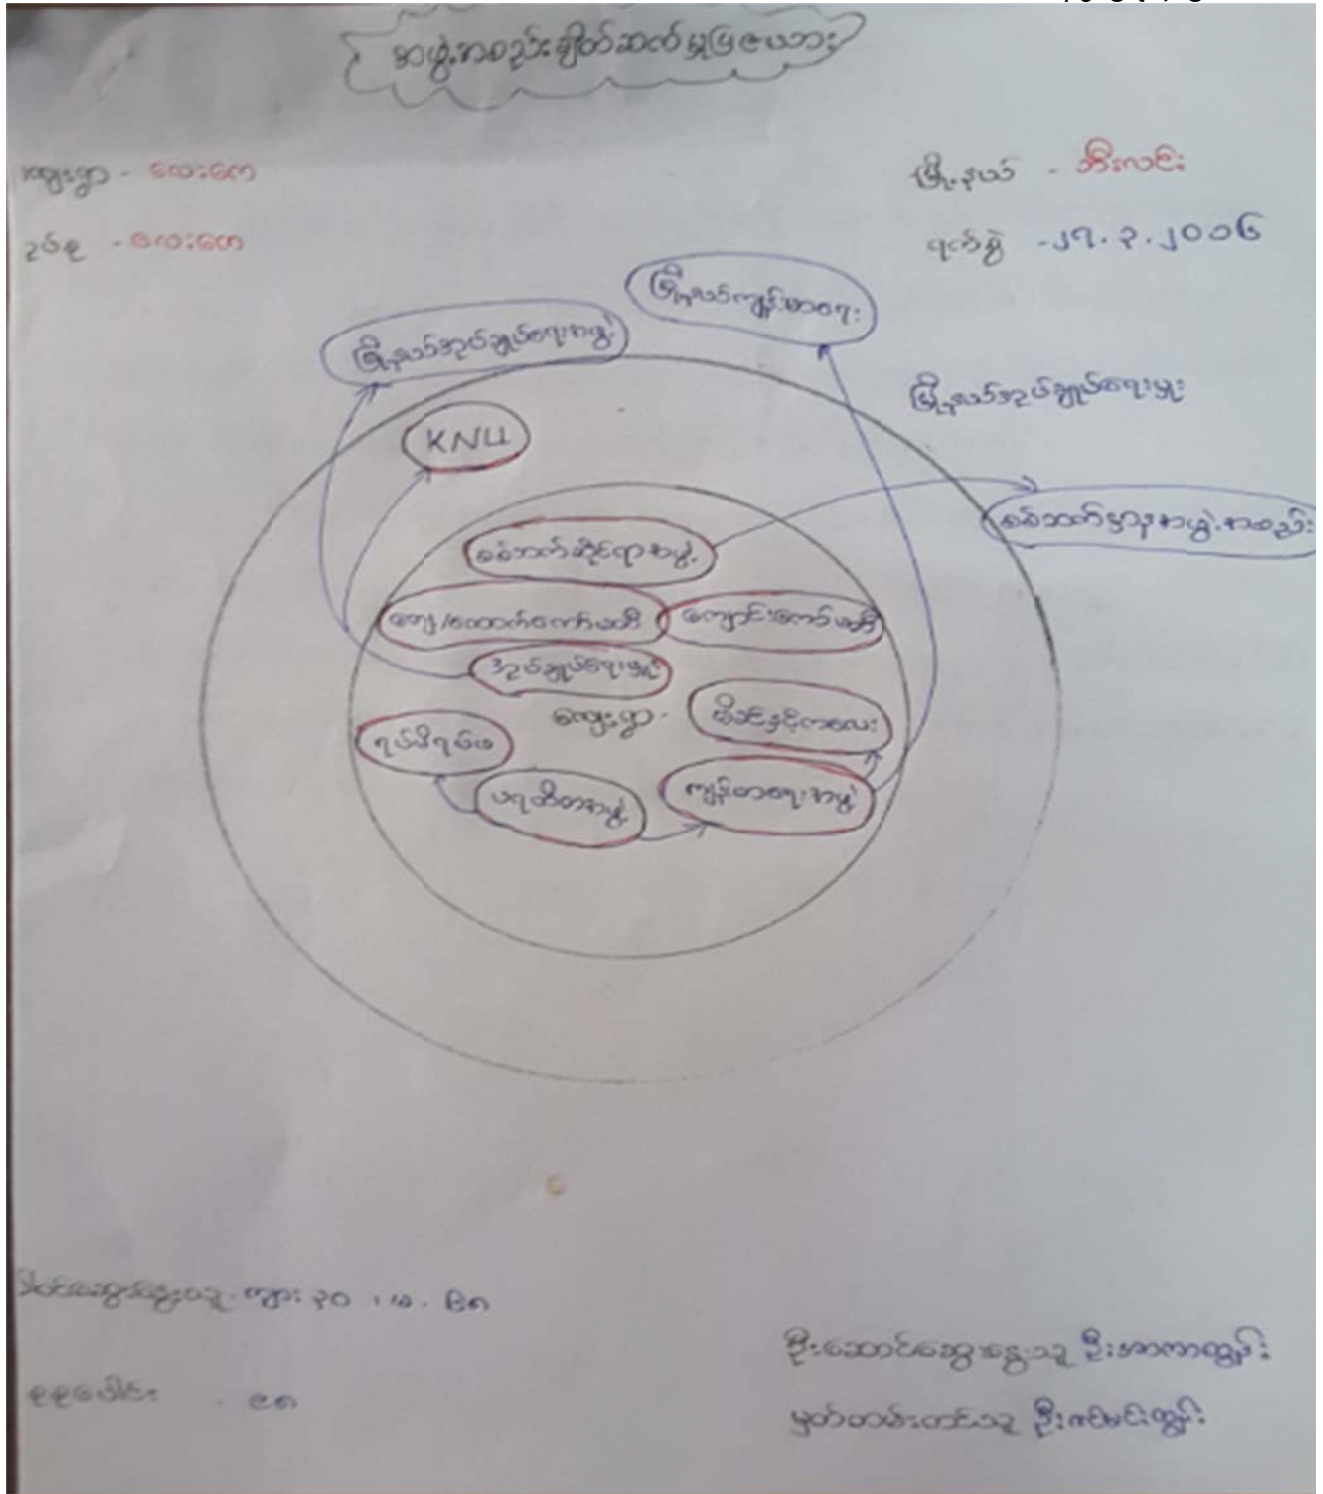 အဖွဲ့အစည်းချိတ်ဆက်မှုပြဇယား
ကျေးရွာ - လေးကေ
မြို့နယ် - ဘီးလင်း
အုပ်စု - လေးကေ
ရက်စွဲ - ၂၇.၃.၂၀၁၆
မြို့နယ်ကျန်းမာရေး
မြို့နယ်အုပ်ချုပ်ရေးအဖွဲ့
မြို့နယ်အုပ်ချုပ်ရေးမှူး
KNU
စစ်ဘက်ဌာနအဖွဲ့အစည်း
စစ်ဘက်ဆိုင်ရာအဖွဲ့
ကျေး/ထောက်ကော်မတီ
ကျောင်းကော်မတီ
အုပ်ချုပ်ရေးမှူး
ကျေးရွာ
မိခင်နှင့်ကလေး
ရပ်မိရပ်ဖ
ပရဟိတအဖွဲ့
ကျန်းမာရေးအဖွဲ့
ပါဝင်ဆွေးနွေးသူ - ကျား ၃၀ ၊ မ -
စုစုပေါင်း -
ဦးဆောင်ဆွေးနွေးသူ ဦးအာကာထွန်း
မှတ်တမ်းတင်သူ ဦးဇင်မင်းထွန်း